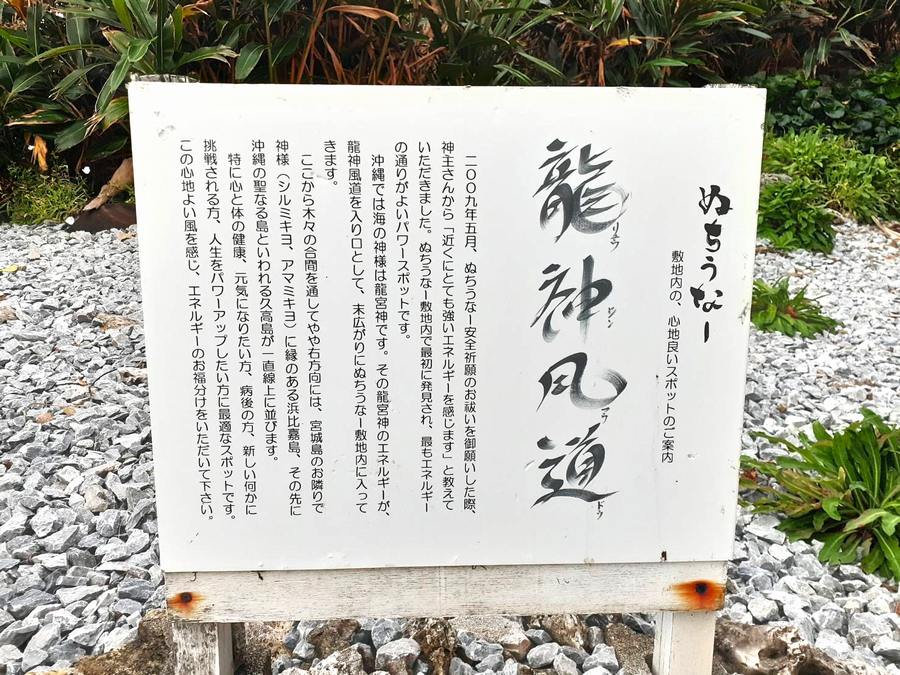 ぬちうなー
敷地内の、心地良いスポットのご案内
龍神風道
リュウ
ジン
フウ
ドウ
二〇〇九年五月、ぬちうなー安全祈願のお祓いを御願いした際、
神主さんから「近くにとても強いエネルギーを感じます」と教えて
いただきました。ぬちうなー敷地内で最初に発見され、最もエネルギー
の通りがよいパワースポットです。
沖縄では海の神様は龍宮神です。その龍宮神のエネルギーが、
龍神風道を入り口として、末広がりにぬちうなー敷地内に入って
きます。
ここから木々の合間を通してやや右方向には、宮城島のお隣りで
神様（シルミキヨ、アマミキヨ）に縁のある浜比嘉島、その先に
沖縄の聖なる島といわれる久高島が一直線上に並びます。
特に心と体の健康、元気になりたい方、病後の方、新しい何かに
挑戦される方、人生をパワーアップしたい方に最適なスポットです。
この心地よい風を感じ、エネルギーのお福分けをいただいて下さい。